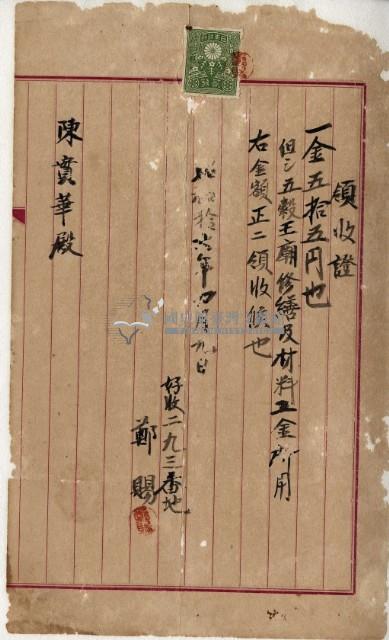 領收證
一金五拾五円也
但シ五穀王廟修繕及材料工金所用
右金額正ニ領收候也
昭和拾六年四月九日
好收二九三番地
鄭賜
陳賣華殿